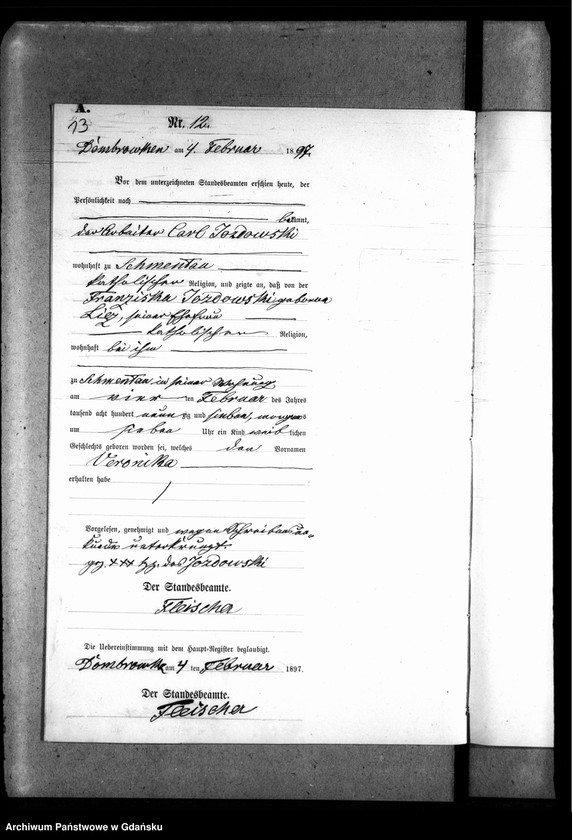 A.
13
Nr. 12.
Dombrowken am 4. Februar 1897.
Vor dem unterzeichneten Standesbeamten erschien heute, der
Persönlichkeit nach
bekannt,
der Arbeiter Carl Jozdowski
wohnhaft zu Schmentau
katholischer Religion, und zeigte an, daß von der
Franziska Jozdowski geborene
seiner Ehefrau
katholischer Religion,
wohnhaft bei ihm
zu Schmentau in seiner Wohnung
am vier ten Februar des Jahres
tausend acht hundert neun zig und sieben, morgens
um sieben Uhr ein Kind weib lichen
Geschlechts geboren worden sei, welches den Vornamen
Veronika
erhalten habe
Vorgelesen, genehmigt und wegen Schreibensun-
kunde unterkreuzt.
gez. +++ des Jozdowski
Der Standesbeamte.
Fleischer
Die Uebereinstimmung mit dem Haupt-Register beglaubigt.
Dombrowken am 4 ten Februar 1897.
Der Standesbeamte.
Fleischer
Archiwum Państwowe w Gdańsku